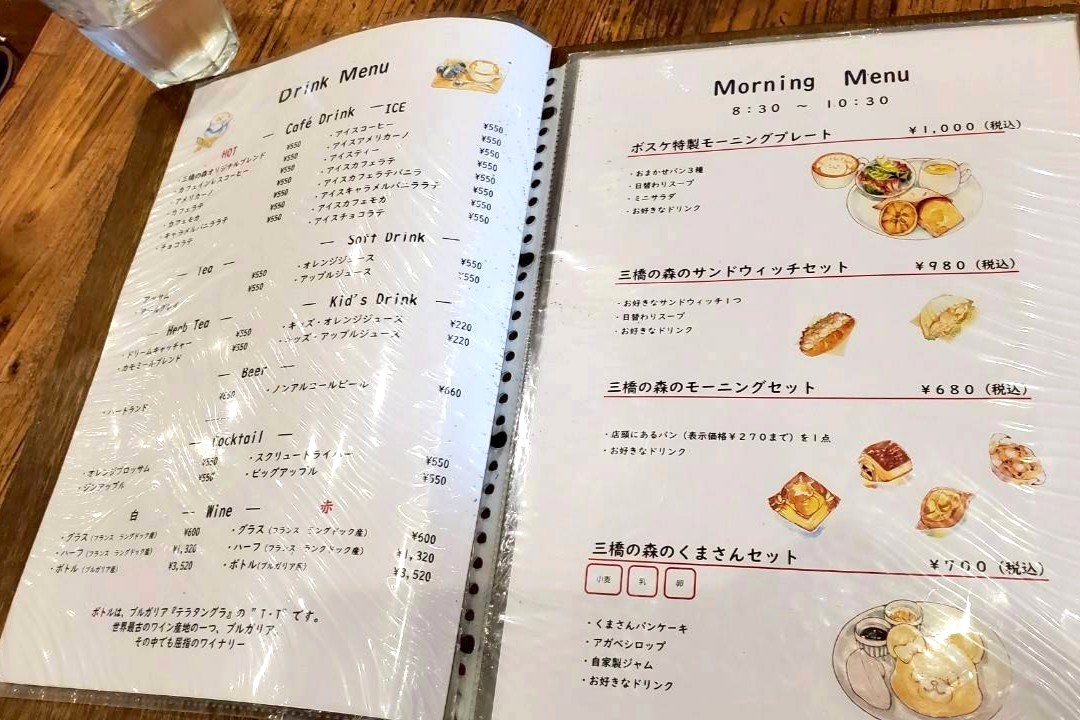 Drink Menu
Café Drink
HOT
・三橋の森オリジナルブレンド ¥550
・カフェインレスコーヒー ¥550
・アメリカーノ ¥550
・カフェラテ ¥550
・カフェモカ ¥550
・キャラメルバニララテ ¥550
・チョコラテ ¥550
ICE
・アイスコーヒー ¥550
・アイスアメリカーノ ¥550
・アイスティー ¥550
・アイスカフェラテ ¥550
・アイスカフェラテバニラ ¥550
・アイスキャラメルバニララテ ¥550
・アイスカフェモカ ¥550
・アイスチョコラテ ¥550
Tea
アッサム ¥550
¥550
Soft Drink
・オレンジジュース ¥550
・アップルジュース ¥550
Herb Tea
・ドリームキャッチャー ¥550
・カモミールブレンド ¥550
Kid's Drink
・キッズ・オレンジジュース ¥220
・キッズ・アップルジュース ¥220
Beer
・ハートランド
・ノンアルコールビール ¥660
Cocktail
・オレンジブロッサム ¥550
・ジンアップル ¥550
・スクリュードライバー ¥550
・ビッグアップル ¥550
Wine
白
・グラス（フランス ラングドック産） ¥600
・ハーフ（フランス ラングドック産） ¥1,320
・ボトル（ブルガリア産） ¥3,520
赤
・グラス（フランス ラングドック産） ¥600
・ハーフ（フランス ラングドック産） ¥1,320
・ボトル（ブルガリア産） ¥3,520
ボトルは、ブルガリア『テラタングラ』の
世界最古のワイン産地の一つ、ブルガリア
その中でも屈指のワイナリー
Morning Menu
8:30 ～ 10:30
ボスケ特製モーニングプレート ￥１,０００（税込）
・おまかせパン３種
・日替わりスープ
・ミニサラダ
・お好きなドリンク
三橋の森のサンドウィッチセット ￥９８０（税込）
・お好きなサンドウィッチ１つ
・日替わりスープ
・お好きなドリンク
三橋の森のモーニングセット ￥６８０（税込）
・店頭にあるパン（表示価格￥２７０まで）を１点
・お好きなドリンク
三橋の森のくまさんセット ￥７００（税込）
小麦 乳 卵
・くまさんパンケーキ
・アガベシロップ
・自家製ジャム
・お好きなドリンク